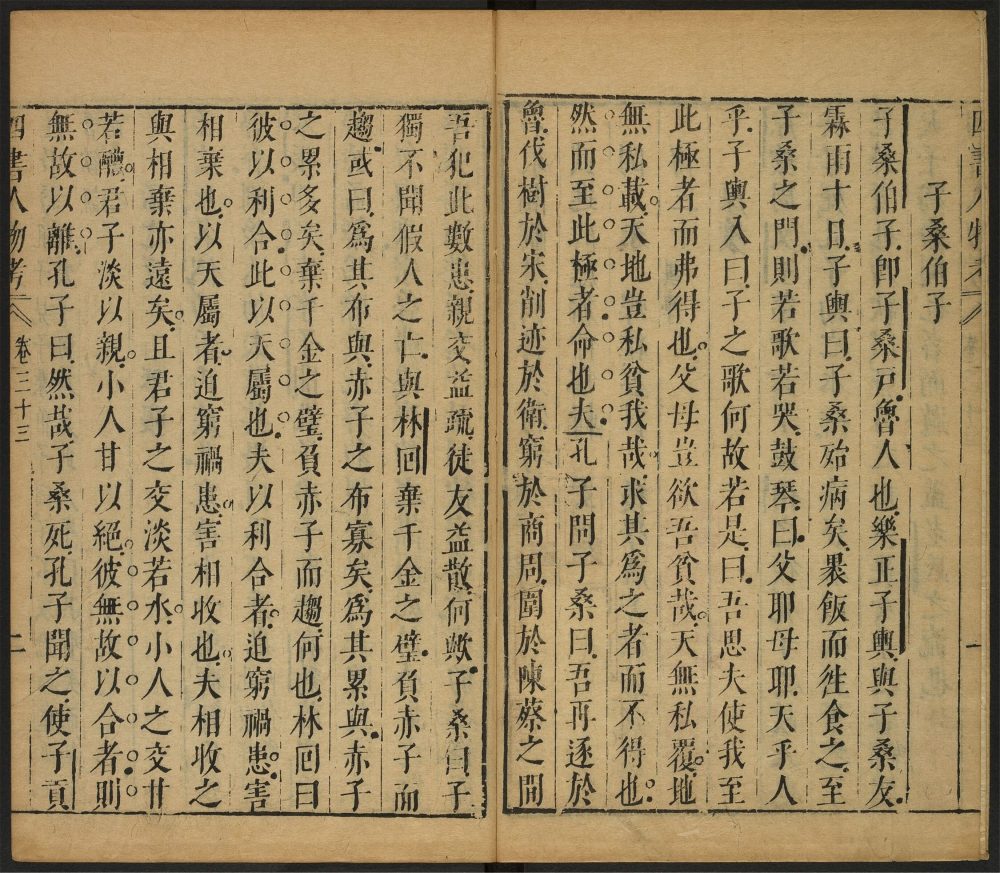 子桑伯子
子桑伯子卽子桑戸魯人也樂正子輿與子桑友
霖雨十日子輿曰子桑殆病矣裹飯而徃食之至
子桑之門則若歌若哭鼓琴曰父耶母耶天乎人
乎子輿入曰子之歌何故若是曰吾思夫使我至
此極者而弗得也父母豈欲吾貧哉天無私覆地
無私載天地豈私貧我哉求其爲之者而不得也
然而至此極者命也夫孔子問子桑曰吾再逐於
魯伐樹於宋削迹於衛窮於商周圍於陳蔡之間
吾犯此數患親交益疏徒友益散何歟子桑曰子
獨不聞假人之亡與林回棄千金之璧負赤子而
趨或曰爲其布與赤子之布寡矣爲其累與赤子
之累多矣棄千金之璧負赤子而趨何也林回曰
彼以利合此以天屬也夫以利合者迫窮禍患害
相棄也以天屬者迫窮禍患害相收也夫相收之
與相棄亦遠矣且君子之交淡若水小人之交甘
若醴君子淡以親小人甘以絕彼無故以合者則
無故以離孔子曰然哉子桑死孔子聞之使子貢
四書人物考 卷三十三 二